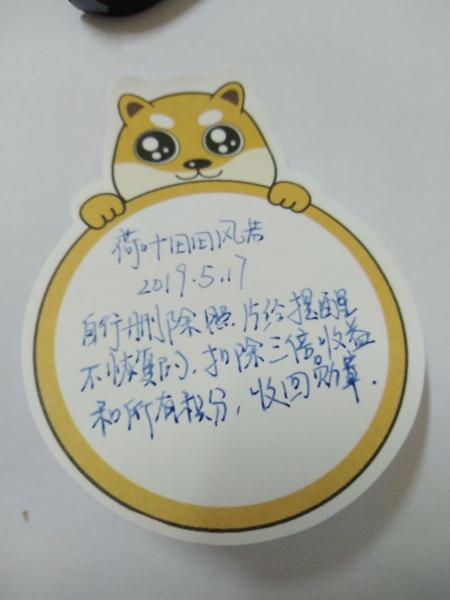 荷叶田田风若
2019.5.17
自行删除照片给提醒
不恢复的，扣除三倍收益
和所有积分，收回勋章.